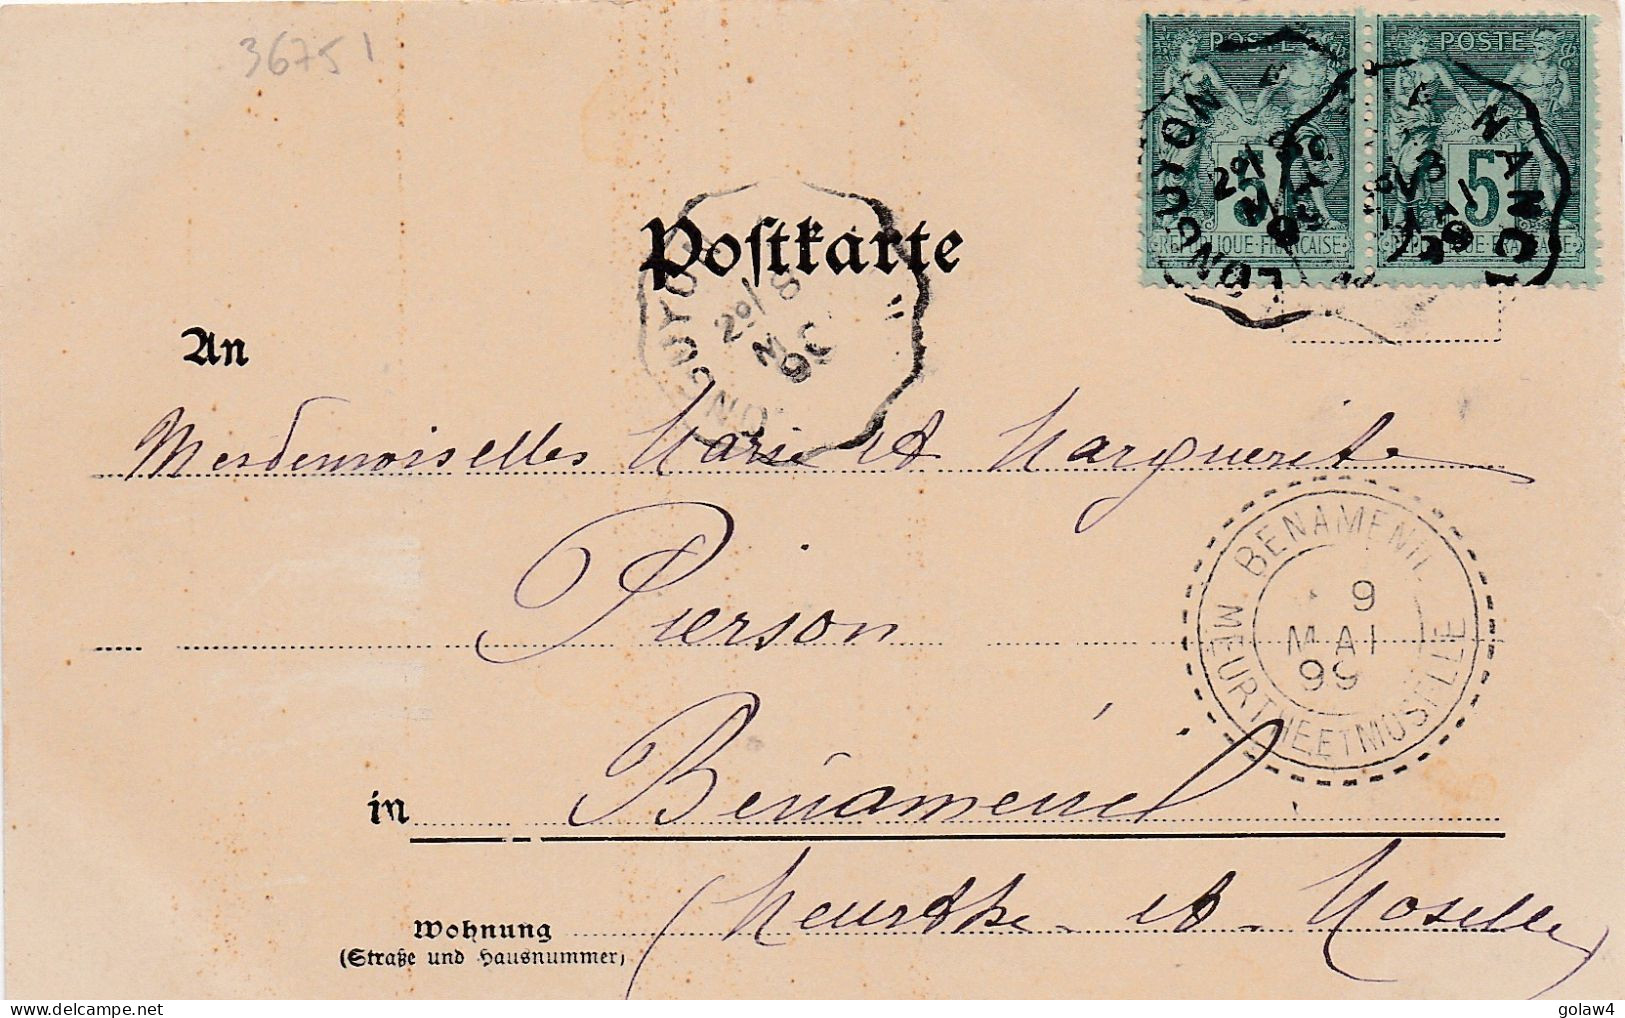 36751
POSTE POSTE
5 5
REPUBLIQUE FRANCAISE REPUBLIQUE FRANCAISE
LONGUYON A NANCY
Postkarte
LONGUYON
2º/ 8
An
Mesdemoiselles Marie et Marguerite
Pierson
BENAMENIL
9
MAI
99
MEURTHE ET MOSELLE
in Bénaménil
(Meurthe-et-Moselle)
Wohnung
(Straße und Hausnummer)
golaw4